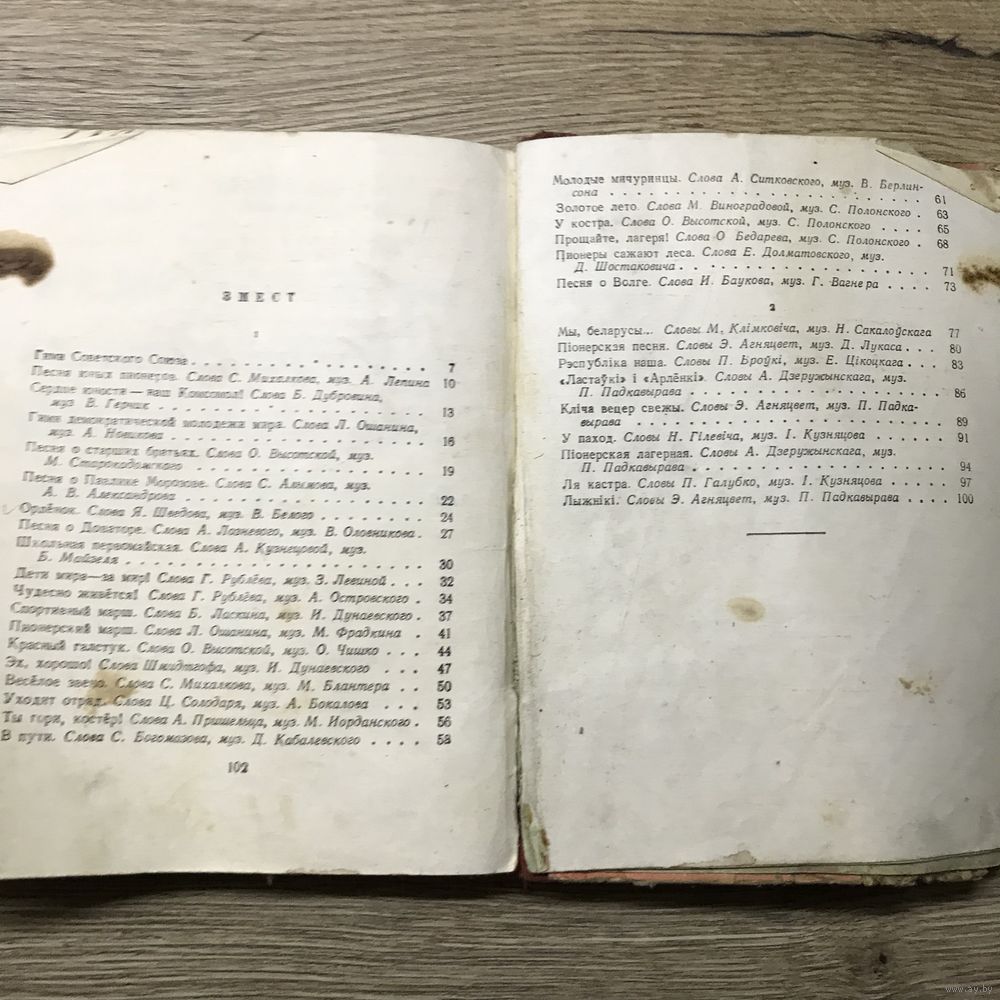 ЗМЕСТ
1
Гимн Советского Союза . . . . . . . . . . . . . . 7
Песня юных пионеров. Слова С. Михалкова, муз. А. Лепина 10
Сердце юности — наш Комсомол! Слова Б. Дубровина,
муз В. Герчик . . . . . . . . . . . . . . 13
Гимн демократической молодежи мира. Слова Л. Ошанина,
муз. А. Новикова . . . . . . . . . . . . . . 16
Песня о старших братьях. Слова О. Высотской, муз.
М. Старокадомского . . . . . . . . . . . . . . 19
Песня о Павлике Морозове. Слова С. Алымова, муз.
А. В. Александрова . . . . . . . . . . . . . . 22
Орлёнок. Слова Я. Шведова, муз. В. Белого . . . . . . . . 24
Песня о Доваторе. Слова А. Лозневого, муз. В. Оловникова . 27
Школьная первомайская. Слова А. Кузнецовой, муз.
Б. Майзеля . . . . . . . . . . . . . . 30
Дети мира — за мир! Слова Г. Рублёва, муз. З. Левиной . . . 32
Чудесно живётся! Слова Г. Рублёва, муз. А. Островского . 34
Спортивный марш. Слова Б. Ласкина, муз. И. Дунаевского . 37
Пионерский марш. Слова Л. Ошанина, муз. М. Фрадкина . 41
Красный галстук. Слова О. Высотской, муз. О. Чишко . . . 44
Эх, хорошо! Слова Шмидтгофа, муз. И. Дунаевского . . . 47
Весёлое звено. Слова С. Михалкова, муз. М. Блантера . . 50
Уходит отряд. Слова Ц. Солодаря, муз. А. Бакалова . . . 53
Ты гори, костёр! Слова А. Пришельца, муз. М. Иорданского . 56
В пути. Слова С. Богомазова, муз. Д. Кабалевского . . . . 58
102
Молодые мичуринцы. Слова А. Ситковского, муз. В. Берлин-
сона . . . . . . . . . . . . . . 61
Золотое лето. Слова М. Виноградовой, муз. С. Полонского . 63
У костра. Слова О. Высотской, муз. С. Полонского . . . . 65
Прощайте, лагеря! Слова О Бедарева, муз. С. Полонского . 68
Пионеры сажают леса. Слова Е. Долматовского, муз.
Д. Шостаковича . . . . . . . . . . . . . . 71
Песня о Волге. Слова И. Баукова, муз. Г. Вагнера . . . . 73
2
Мы, беларусы... Словы М. Клімковіча, муз. Н. Сакалоўскага 77
Піонерская песня. Словы Э. Агняцвет, муз. Д. Лукаса . . . 80
Рэспубліка наша. Словы П. Броўкі, муз. Е. Цікоцкага . . . 83
«Ластаўкі» і «Арлёнкі». Словы А. Дзеружынскага, муз.
П. Падкавырава . . . . . . . . . . . . . . 86
Кліча вецер свежы. Словы Э. Агняцвет, муз. П. Падка-
вырава . . . . . . . . . . . . . . 89
У паход. Словы Н. Гілевіча, муз. І. Кузняцова . . . . . 91
Піонерская лагерная. Словы А. Дзеружынскага, муз.
П. Падкавырава . . . . . . . . . . . . . . 94
Ля кастра. Словы П. Галубко, муз. І. Кузняцова . . . . . 97
Лыжнікі. Словы Э. Агняцвет, муз. П. Падкавырава . . . . 100
www.ay.by